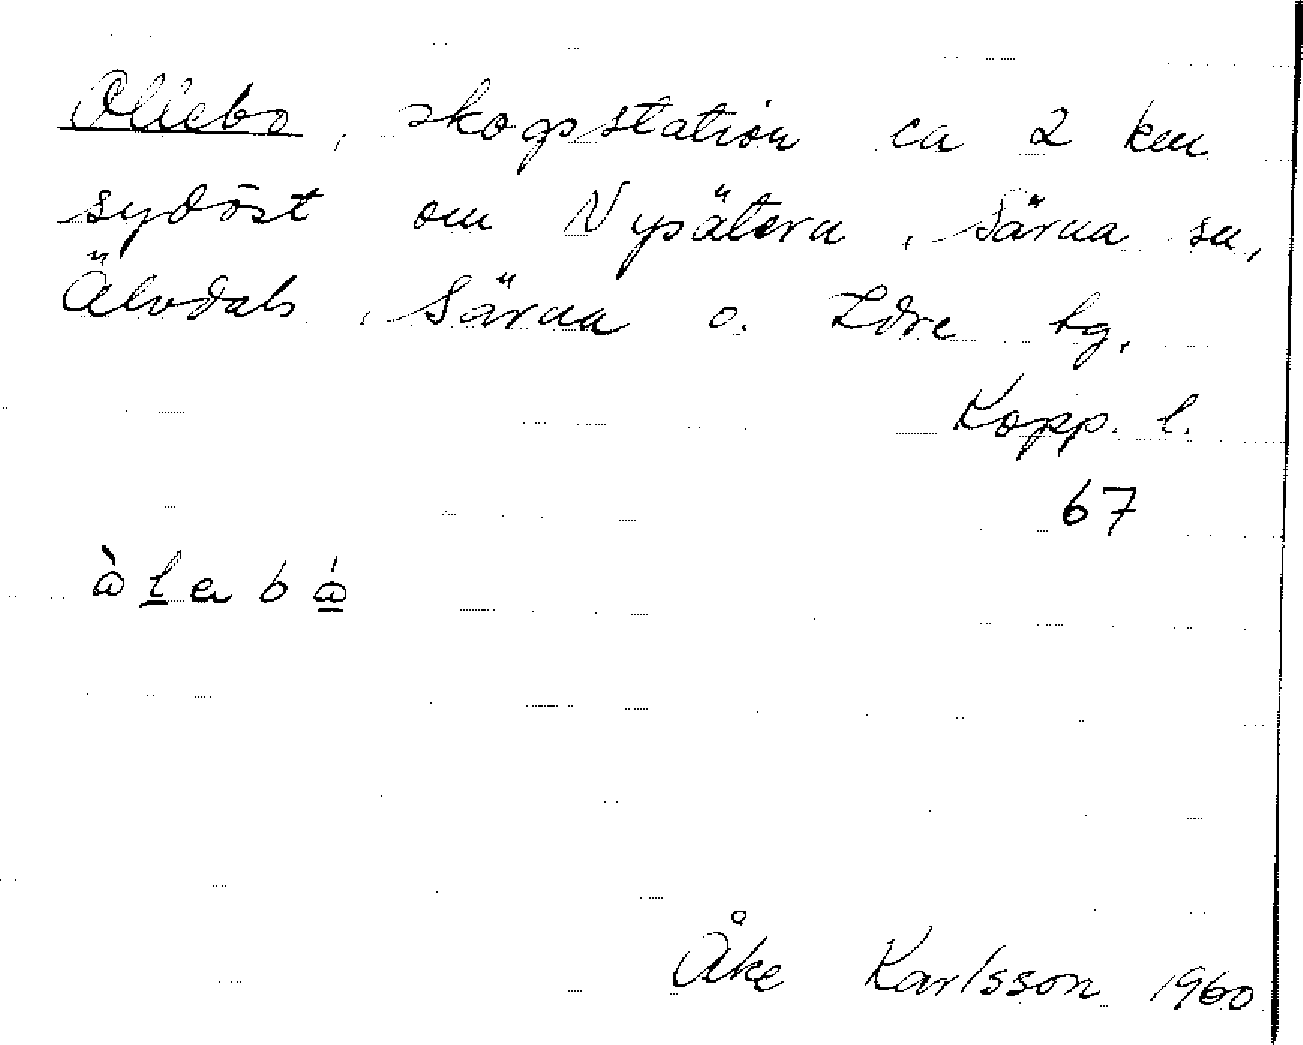 Ollebo, skogsstation ca 2 km
sydöst om Nysätern, Särna sn,
Älvdals, Särna o. Idre tg,
Kopp. l.
67
Åke Karlsson 1960